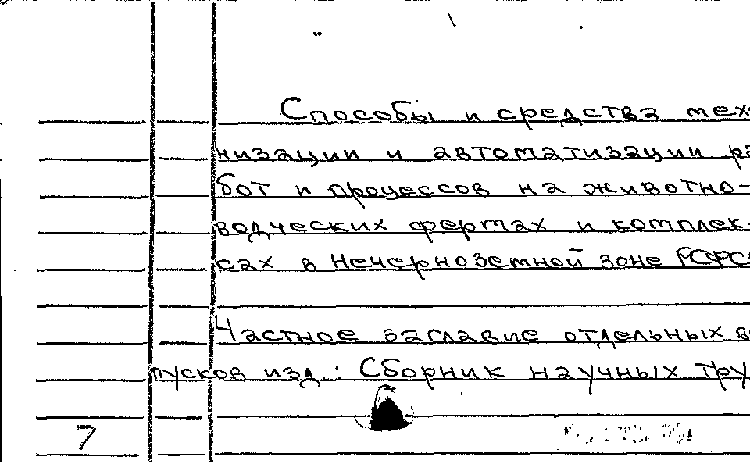 Способы и средства меха
низации и автоматизации ра
бот и процессов на животно-
водческих фермах и комплек-
сах в Нечерноземной зоне РСФС
Частное заглавие отдельных в
пусков изд.: Сборник научных тру
7